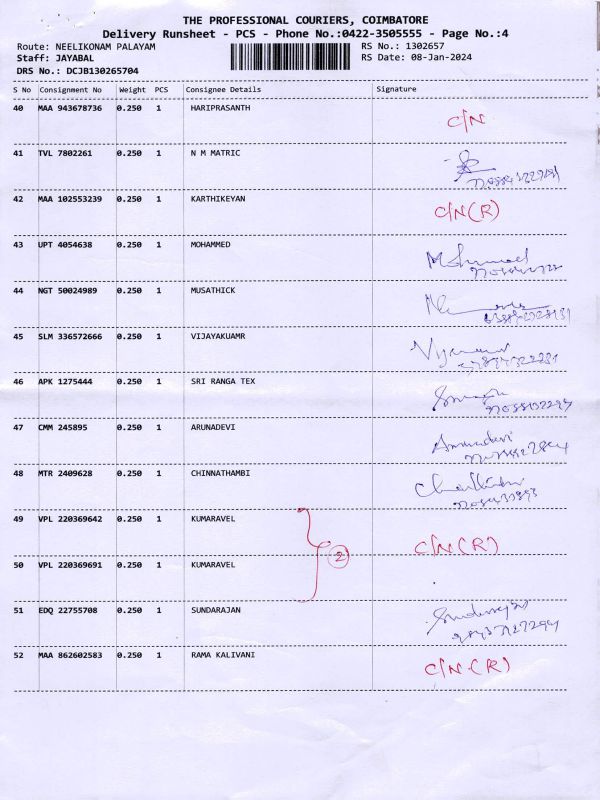 THE PROFESSIONAL COURIERS, COIMBATORE
Delivery Runsheet - PCS - Phone No.:0422-3505555 - Page No.:4
Route: NEELIKONAM PALAYAM RS No.: 1302657
Staff: JAYABAL RS Date: 08-Jan-2024
DRS No.: DCJB130265704
S No Consignment No Weight PCS Consignee Details Signature
40 MAA 943678736 0.250 1 HARIPRASANTH C/N
41 TVL 7802261 0.250 1 N M MATRIC
42 MAA 102553239 0.250 1 KARTHIKEYAN C/N(R)
43 UPT 4054638 0.250 1 MOHAMMED
44 NGT 50024989 0.250 1 MUSATHICK
45 SLM 336572666 0.250 1 VIJAYAKUAMR
46 APK 1275444 0.250 1 SRI RANGA TEX
47 CMM 245895 0.250 1 ARUNADEVI
48 MTR 2409628 0.250 1 CHINNATHAMBI
49 VPL 220369642 0.250 1 KUMARAVEL C/N(R)
2
50 VPL 220369691 0.250 1 KUMARAVEL
51 EDQ 22755708 0.250 1 SUNDARAJAN
52 MAA 862602583 0.250 1 RAMA KALIVANI C/N(R)